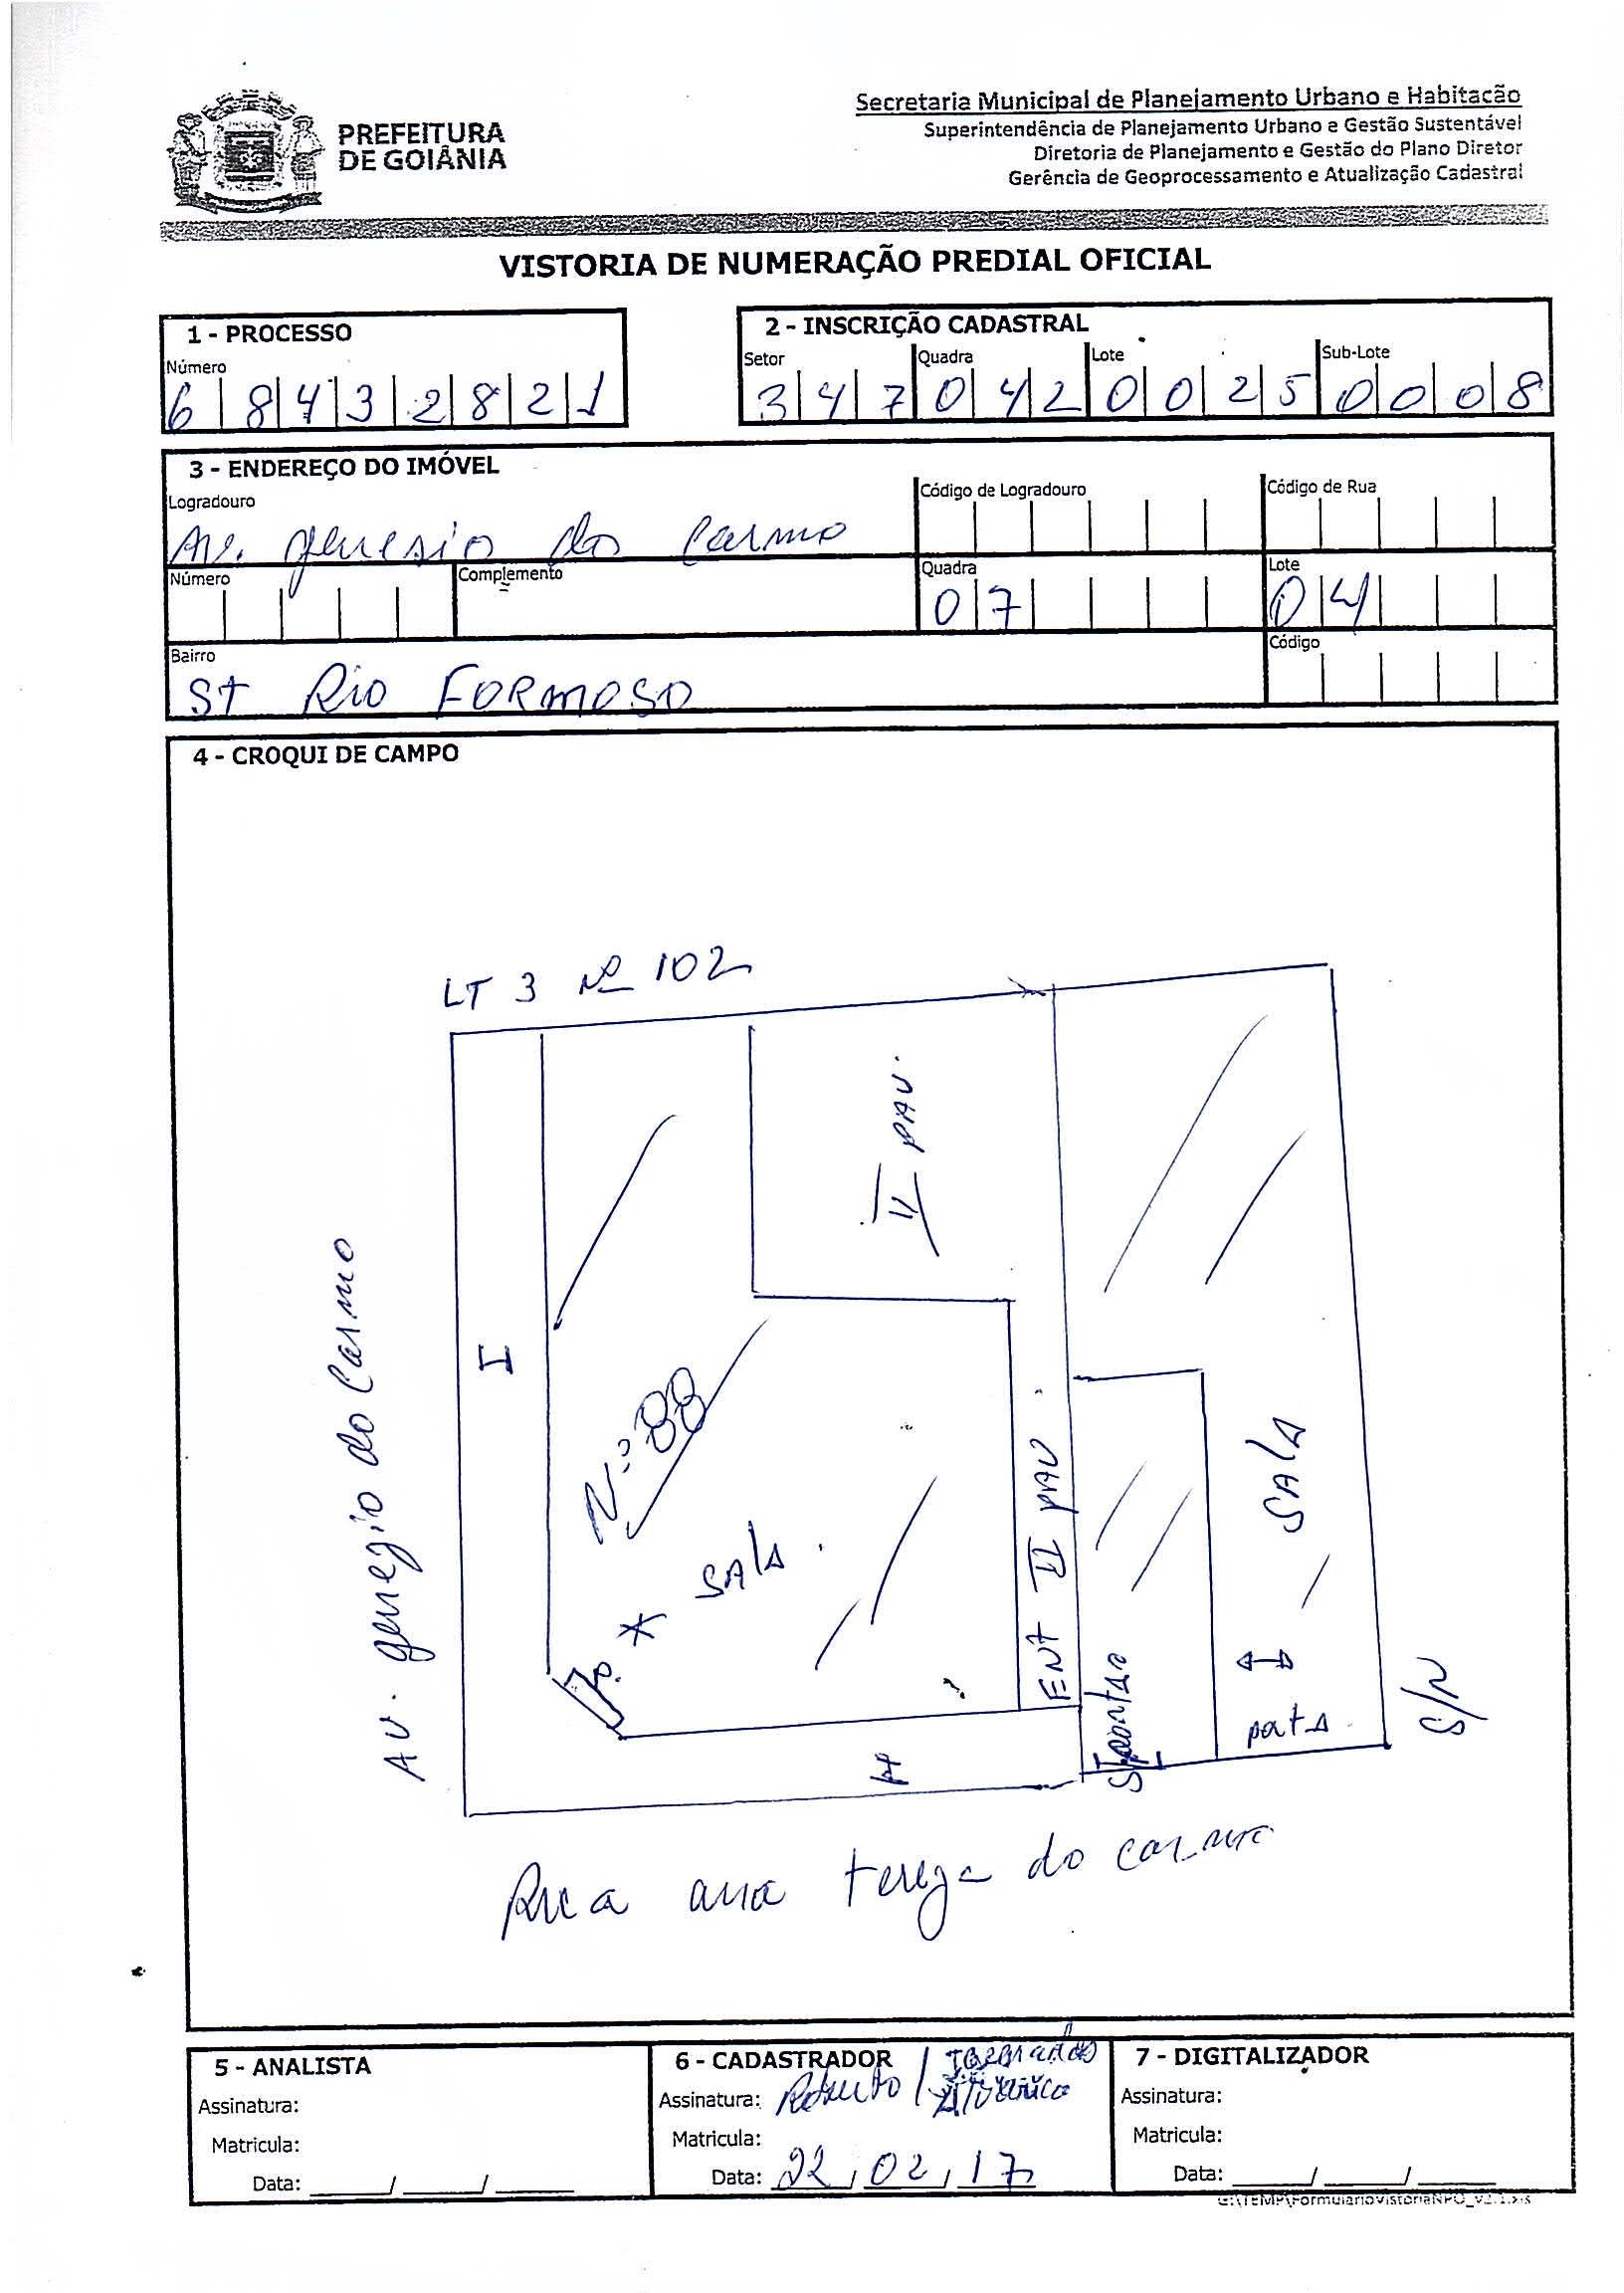 PREFEITURA
DE GOIÂNIA
Secretaria Municipal de Planejamento Urbano e Habitação
Superintendência de Planejamento Urbano e Gestão Sustentável
Diretoria de Planejamento e Gestão do Plano Diretor
Gerência de Geoprocessamento e Atualização Cadastral
VISTORIA DE NUMERAÇÃO PREDIAL OFICIAL
1 - PROCESSO
Número
6 8 4 3 2 8 2 1
2 - INSCRIÇÃO CADASTRAL
Setor Quadra Lote Sub-Lote
3 4 7 0 4 2 0 0 2 5 0 0 0 8
3 - ENDEREÇO DO IMÓVEL
Logradouro Código de Logradouro Código de Rua
Av. genesio do Carmo
Número Complemento Quadra Lote
0 7 0 4
Bairro Código
St Rio FORMOSO
4 - CROQUI DE CAMPO
LT 3 Nº 102
II PAV.
I
Av. genezio do Carmo
N:º 88
SALA
P.
ENT II PAV.
portão
SALA
porta
S/N
Rua ana tereza do carmo
5 - ANALISTA
Assinatura:
Matricula:
Data: ____/____/____
6 - CADASTRADOR
Assinatura: Roberto /
Matricula:
Data: 22/02/17
7 - DIGITALIZADOR
Assinatura:
Matricula:
Data: ____/____/____
G:\TEMP\FormularioVistoriaNPO_v2.1.xls